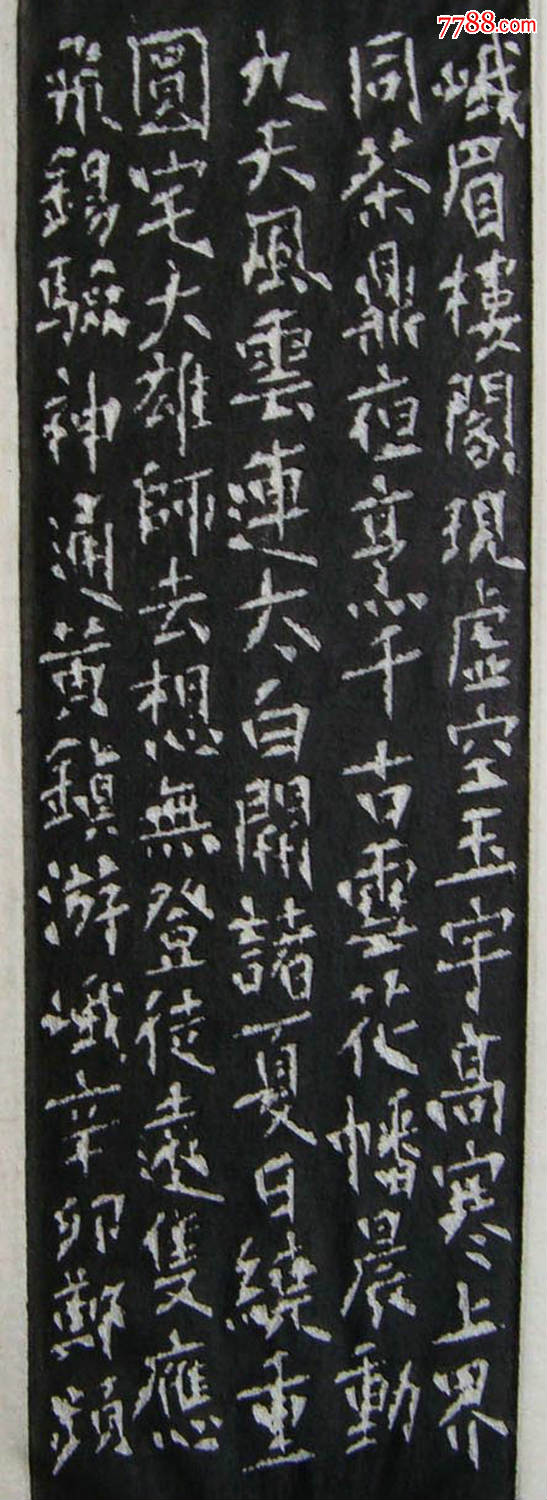 7788.com
峨眉樓閣現虛空玉宇高寒上界
同茶鼎夜烹千古雪花幡晨動
九天風雲連太白開諸夏日繞重
圓宅大雄師去想無登徒遠隻應
飛錫驗神通黄鎮游峨辛卯蘇頻